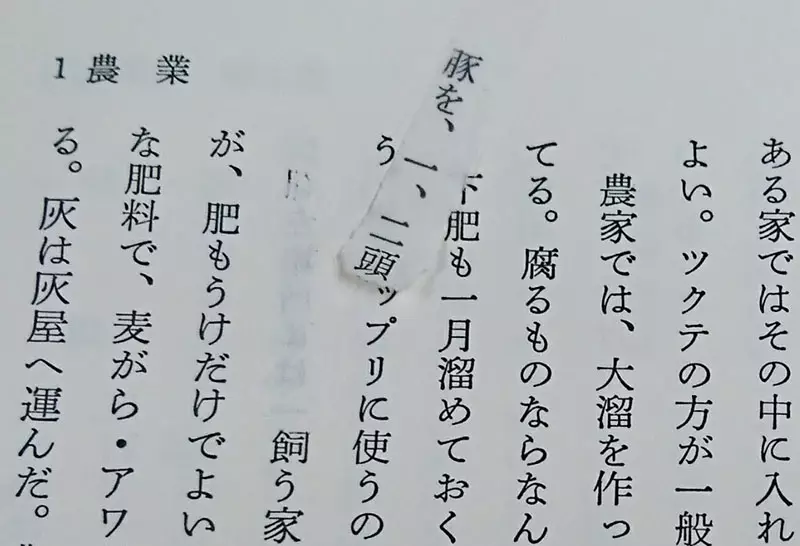 ある家ではその中に入れ
よい。ツクテの方が一般
農家では、大溜を作っ
てる。腐るものならなん
下肥も一月溜めておく
う
ップリに使うの
豚を、一、二頭
飼う家
が、肥もうけだけでよい
な肥料で、麦がら・アワ
る。灰は灰屋へ運んだ。
1 農業